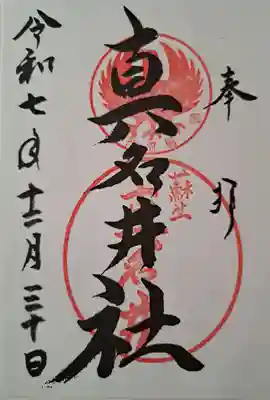 奉拝
真名井社
令和七年十二月三十日
蘇生